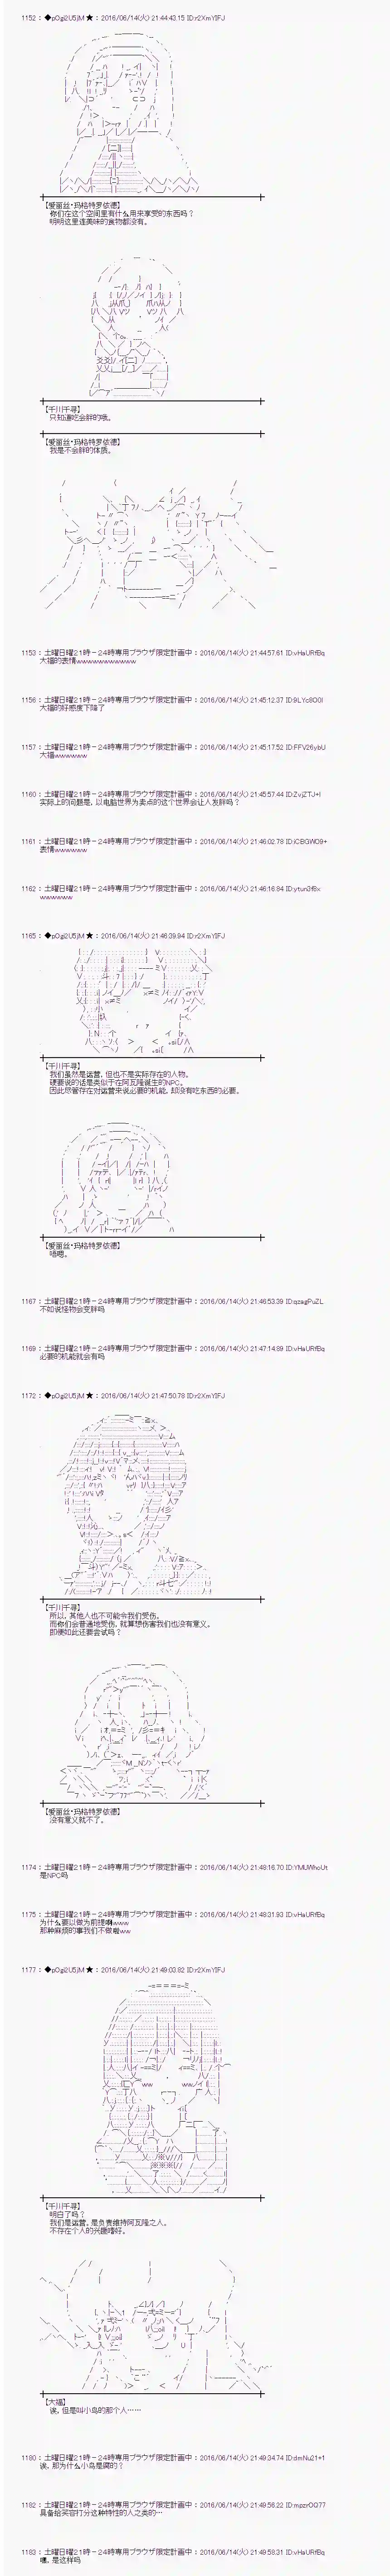 1152 : ◆pOgi2U5jM ★ : 2016/06/14(火) 21:44:43.15 ID:r2XmYIFJ
【爱丽丝·玛格特罗依德】
你们在这个空间里有什么用来享受的东西吗？
明明这里连美味的食物都没有。
【千川千寻】
只知道吃会胖的哦。
【爱丽丝·玛格特罗依德】
我是不会胖的体质。
1153 : 土曜日曜21時－24時専用ブラウザ限定計画中 : 2016/06/14(火) 21:44:57.61 ID:vHaURfBq
大福的表情wwwwwwwwwww
1156 : 土曜日曜21時－24時専用ブラウザ限定計画中 : 2016/06/14(火) 21:45:12.37 ID:9LYc8O0I
大福的好感度下降了
1157 : 土曜日曜21時－24時専用ブラウザ限定計画中 : 2016/06/14(火) 21:45:17.52 ID:FFV26ybU
大福wwwwww
1160 : 土曜日曜21時－24時専用ブラウザ限定計画中 : 2016/06/14(火) 21:45:57.44 ID:ZvjZTJ+I
实际上的问题是，以电脑世界为卖点的这个世界会让人发胖吗？
1161 : 土曜日曜21時－24時専用ブラウザ限定計画中 : 2016/06/14(火) 21:46:02.78 ID:jCBGWO9+
表情wwwwww
1162 : 土曜日曜21時－24時専用ブラウザ限定計画中 : 2016/06/14(火) 21:46:16.84 ID:ytun3f8x
wwwwww
1165 : ◆pOgi2U5jM ★ : 2016/06/14(火) 21:46:39.94 ID:r2XmYIFJ
【千川千寻】
我们虽然是运营，但也不是实际存在的人物。
硬要说的话是类似于在阿瓦隆诞生的NPC。
因此尽管存在对运营来说必要的机能，却没有吃东西的必要。
【爱丽丝·玛格特罗依德】
唔嗯。
1167 : 土曜日曜21時－24時専用ブラウザ限定計画中 : 2016/06/14(火) 21:46:53.39 ID:qzagPuZL
不如说怪物会变胖吗
1169 : 土曜日曜21時－24時専用ブラウザ限定計画中 : 2016/06/14(火) 21:47:14.89 ID:vHaURfBq
必要的机能就会有吗
1172 : ◆pOgi2U5jM ★ : 2016/06/14(火) 21:47:50.78 ID:r2XmYIFJ
【千川千寻】
所以，其他人也不可能令我们受伤。
而你们会普通地受伤，就算想伤害我们也没有意义。
即便如此还要尝试吗？
【爱丽丝·玛格特罗依德】
没有意义就不了。
1174 : 土曜日曜21時－24時専用ブラウザ限定計画中 : 2016/06/14(火) 21:48:16.70 ID:YMUWhoUt
是NPC吗
1175 : 土曜日曜21時－24時専用ブラウザ限定計画中 : 2016/06/14(火) 21:48:31.93 ID:vHaURfBq
为什么要以做为前提啊www
那种麻烦的事我们不做啦ww
1177 : ◆pOgi2U5jM ★ : 2016/06/14(火) 21:49:03.82 ID:r2XmYIFJ
【千川千寻】
明白了吗？
我们是运营。是负责维持阿瓦隆之人。
不存在个人的兴趣嗜好。
【大福】
诶，但是叫小鸟的那个人……
1180 : 土曜日曜21時－24時専用ブラウザ限定計画中 : 2016/06/14(火) 21:49:34.74 ID:dmNu21+1
诶，那为什么小鸟是腐的？
1182 : 土曜日曜21時－24時専用ブラウザ限定計画中 : 2016/06/14(火) 21:49:56.22 ID:mpzrOQ77
具备给笑容打分这种特性的人之类的…
1183 : 土曜日曜21時－24時専用ブラウザ限定計画中 : 2016/06/14(火) 21:49:58.31 ID:vHaURfBq
嘿，是这样吗